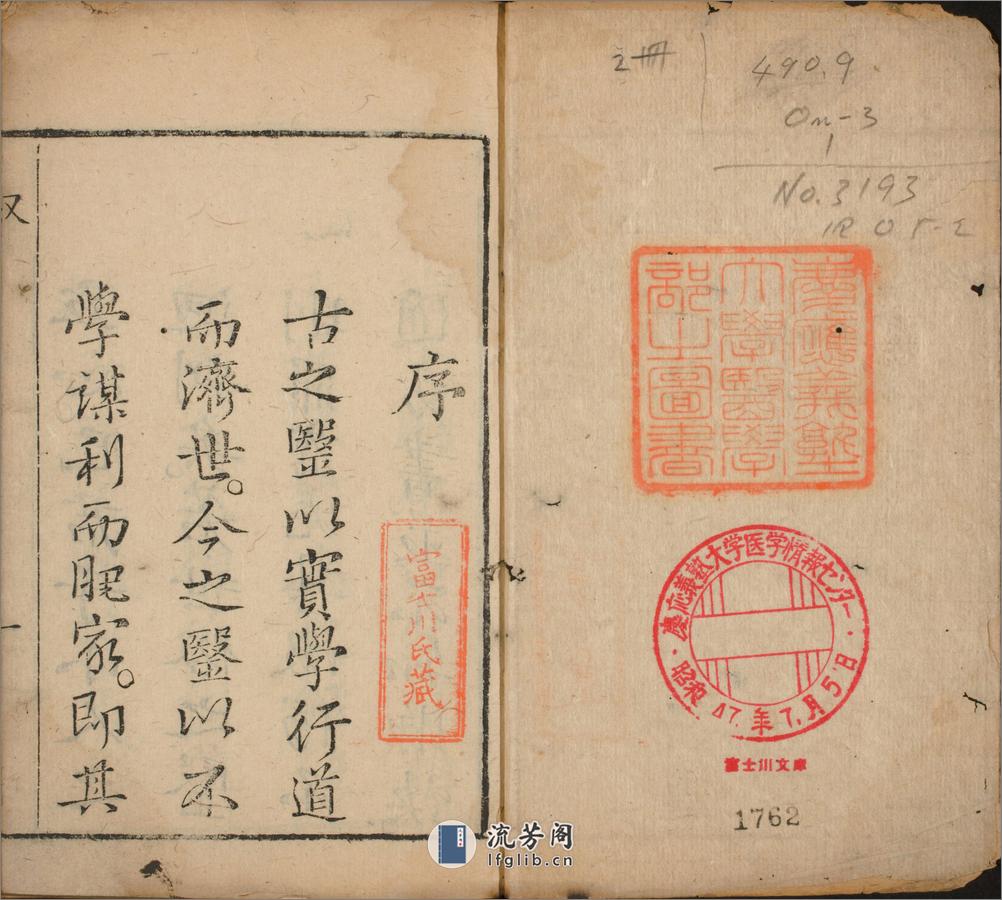 2冊
490.9
On-3
1
No. 3193
慶應義塾
大學醫學
部之圖書
慶応義塾大学医学情報センター
昭和47.年7.月5日
富士川文庫
1762
序
富士川氏藏
古之毉以實學行道
而濟世。今之毉以不
學謀利而肥家。即其
一
流芳阁
lfglib.cn